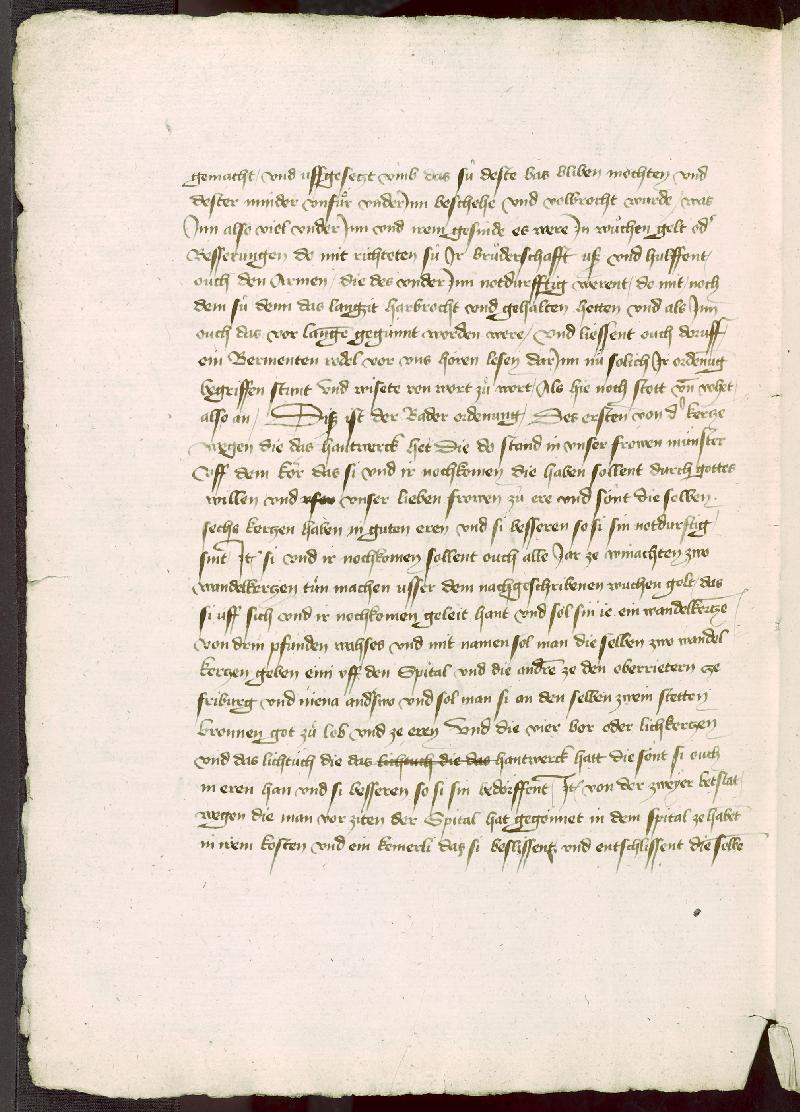 gemacht / vnd uffgesetzt vmb das sú deste bas bliben mochten vnd
dester minder vnfůr vnder Jnn beschehe vnd volbrocht wurde / was
Jnn also viel vnder Jnn vnd irem gesinde es were Jn wůchen gelt od'
Besserungen do mit richteten sú Jr brůderschafft uß vnd hulffent /
ouch den Armen / die des vnder Jnn notdurfftig werent / do mit / noch
dem sú denn das langzit harbrocht vnd gehalten hetten vnd als Jnn
ouch das vor lange gegúnnt worden were / vnd liessent ouch doruff
ein Bermenten rodel vor vns hören lesen dar Jnn nů solich Jr ordenug
begriffen stunt vnd wisete von wort zů wort / Als hie noch stott vn vohet
also an / Diß ist der Bader ordenung / Des ersten von d' kertze
wegen die das hantwerck het Die do stand in vnser frowen múnster
vff dem kôr das si vnd ir nochkomen die haben sollent durch gottes
willen vnd vnser lieben frowen zů ere vnd sônt die selben
sechs kertzen haben in guten eren vnd si besseren so si sin notdurftig
sint Jt si vnd ir nochkomen sollent ouch alle Jar ze winachten zwo
wandelkertzen tůn machen usser dem nachgeschribenen wuchen gelt / das
si uff sich vnd ir nochkomen geleit hant vnd sol sin ie ein wandelkertze
von drin pfunden wahses vnd mit namen sol man die selben zwo wandel
kertzen geben eini vff den Spital vnd die andre ze den oberrietern ze
friburg vnd niena andswo vnd sol man si an den selben zwein stetten
bronnen got zů lob vnd ze eren Vnd die vier bor oder lichkertzen
vnd das lichtůch die das lichtuch die das hantwerck hatt die sônt si ouch
in eren han vnd si besseren so si sin bedôrffent Jt von der zweyer betstat
wegen die man vor ziten der Spital hat gegonnet in dem spital ze habet
in irem kosten vnd ein kemerli daz si beslissent vnd entschlissent die selbe